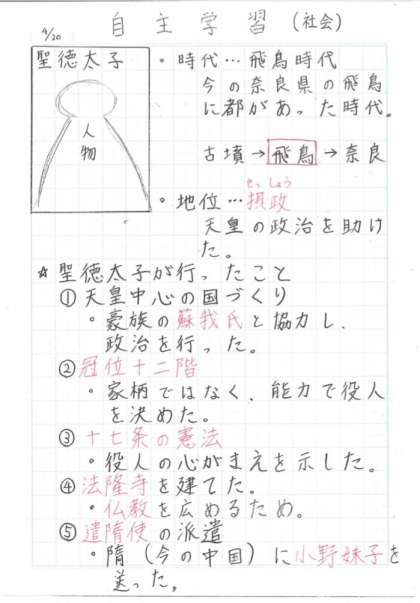 9/20
自主学習(社会)
聖徳太子
人物
・時代…飛鳥時代
今の奈良県の飛鳥
に都があった時代。
古墳→飛鳥→奈良
せっしょう
・地位…摂政
天皇の政治を助け
た。
☆聖徳太子が行ったこと
①天皇中心の国づくり
・豪族の蘇我氏と協力し、
政治を行った。
②冠位十二階
・家柄ではなく、能力で役人
を決めた。
③十七条の憲法
・役人の心がまえを示した。
④法隆寺を建てた。
・仏教を広めるため。
⑤遣隋使の派遣
・隋(今の中国)に小野妹子を
送った。